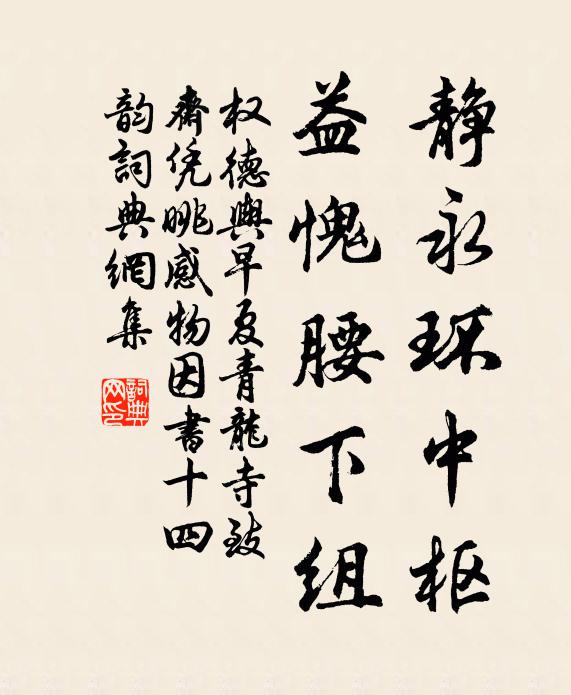 静求环中枢
益愧腰下组
权德輿早夏青龍寺致
齋凭眺感物因書十四
韵詞典網集
詞典网印